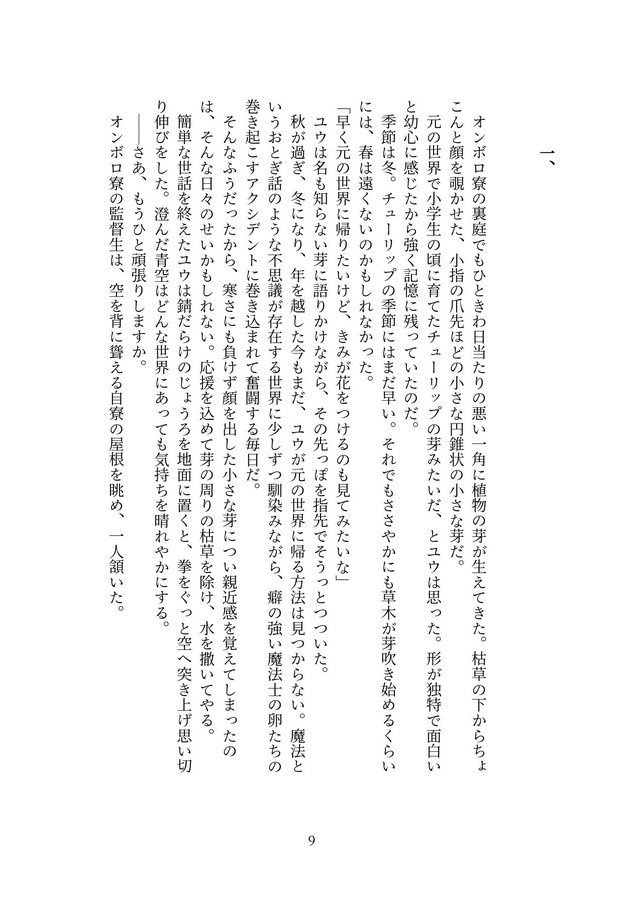 一、
オンボロ寮の裏庭でもひときわ日当たりの悪い一角に植物の芽が生えてきた。枯草の下からちょ
こんと顔を覗かせた、小指の爪先ほどの小さな円錐状の小さな芽だ。
元の世界で小学生の頃に育てたチューリップの芽みたいだ、とユウは思った。形が独特で面白い
と幼心に感じたから強く記憶に残っていたのだ。
季節は冬。チューリップの季節にはまだ早い。それでもささやかにも草木が芽吹き始めるくらい
には、春は遠くないのかもしれなかった。
「早く元の世界に帰りたいけど、きみが花をつけるのも見てみたいな」
ユウは名も知らない芽に語りかけながら、その先っぽを指先でそうっとつついた。
秋が過ぎ、冬になり、年を越した今もまだ、ユウが元の世界に帰る方法は見つからない。魔法と
いうおとぎ話のような不思議が存在する世界に少しずつ馴染みながら、癖の強い魔法士の卵たちの
巻き起こすアクシデントに巻き込まれて奮闘する毎日だ。
そんなふうだったから、寒さにも負けず顔を出した小さな芽につい親近感を覚えてしまったの
は、そんな日々のせいかもしれない。応援を込めて芽の周りの枯草を除け、水を撒いてやる。
簡単な世話を終えたユウは錆だらけのじょうろを地面に置くと、拳をぐっと空へ突き上げ思い切
り伸びをした。澄んだ青空はどんな世界にあっても気持ちを晴れやかにする。
――さあ、もうひと頑張りしますか。
オンボロ寮の監督生は、空を背に聳える自寮の屋根を眺め、一人頷いた。
9